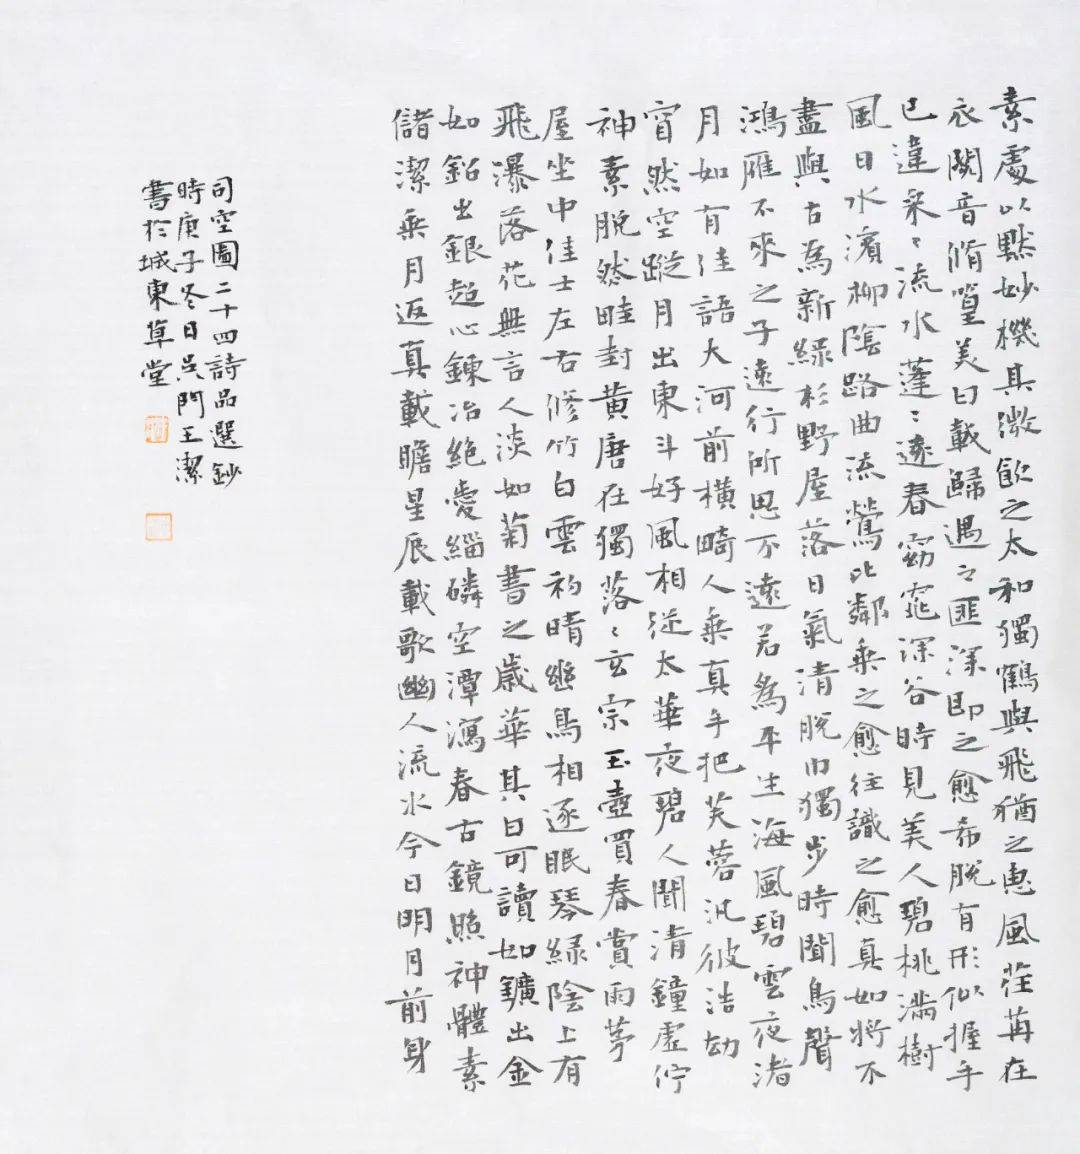 素處以默妙機其微飲之太和獨鶴與飛猶之惠風荏苒在
衣閱音脩篁美曰載歸遇之匪深即之愈希脫有形似握手
已違采〻流水蓬〻遠春窈窕深谷時見美人碧桃滿樹
風日水濱柳陰路曲流鶯比鄰乘之愈往識之愈真如將不
盡與古為新綠杉野屋落日氣清脫巾獨步時聞鳥聲
鴻雁不來之子遠行所思不遠若為平生海風碧雲夜渚
月如有佳語大河前橫畸人乘真手把芙蓉汎彼浩劫
窅然空蹤月出東斗好風相從太華夜碧人聞清鐘虛佇
神素脫然畦封黃唐在獨落〻玄宗玉壺買春賞雨茅
屋坐中佳士左右修竹白雲初晴幽鳥相逐眠琴綠陰上有
飛瀑落花無言人淡如菊書之歲華其曰可讀如鑛出金
如鉛出銀超心鍊冶絕愛緇磷空潭瀉春古鏡照神體素
儲潔乘月返真載瞻星辰載歌幽人流水今日明月前身
司空圖二十四詩品選鈔
時庚子冬日吳門王潔
書於城東草堂